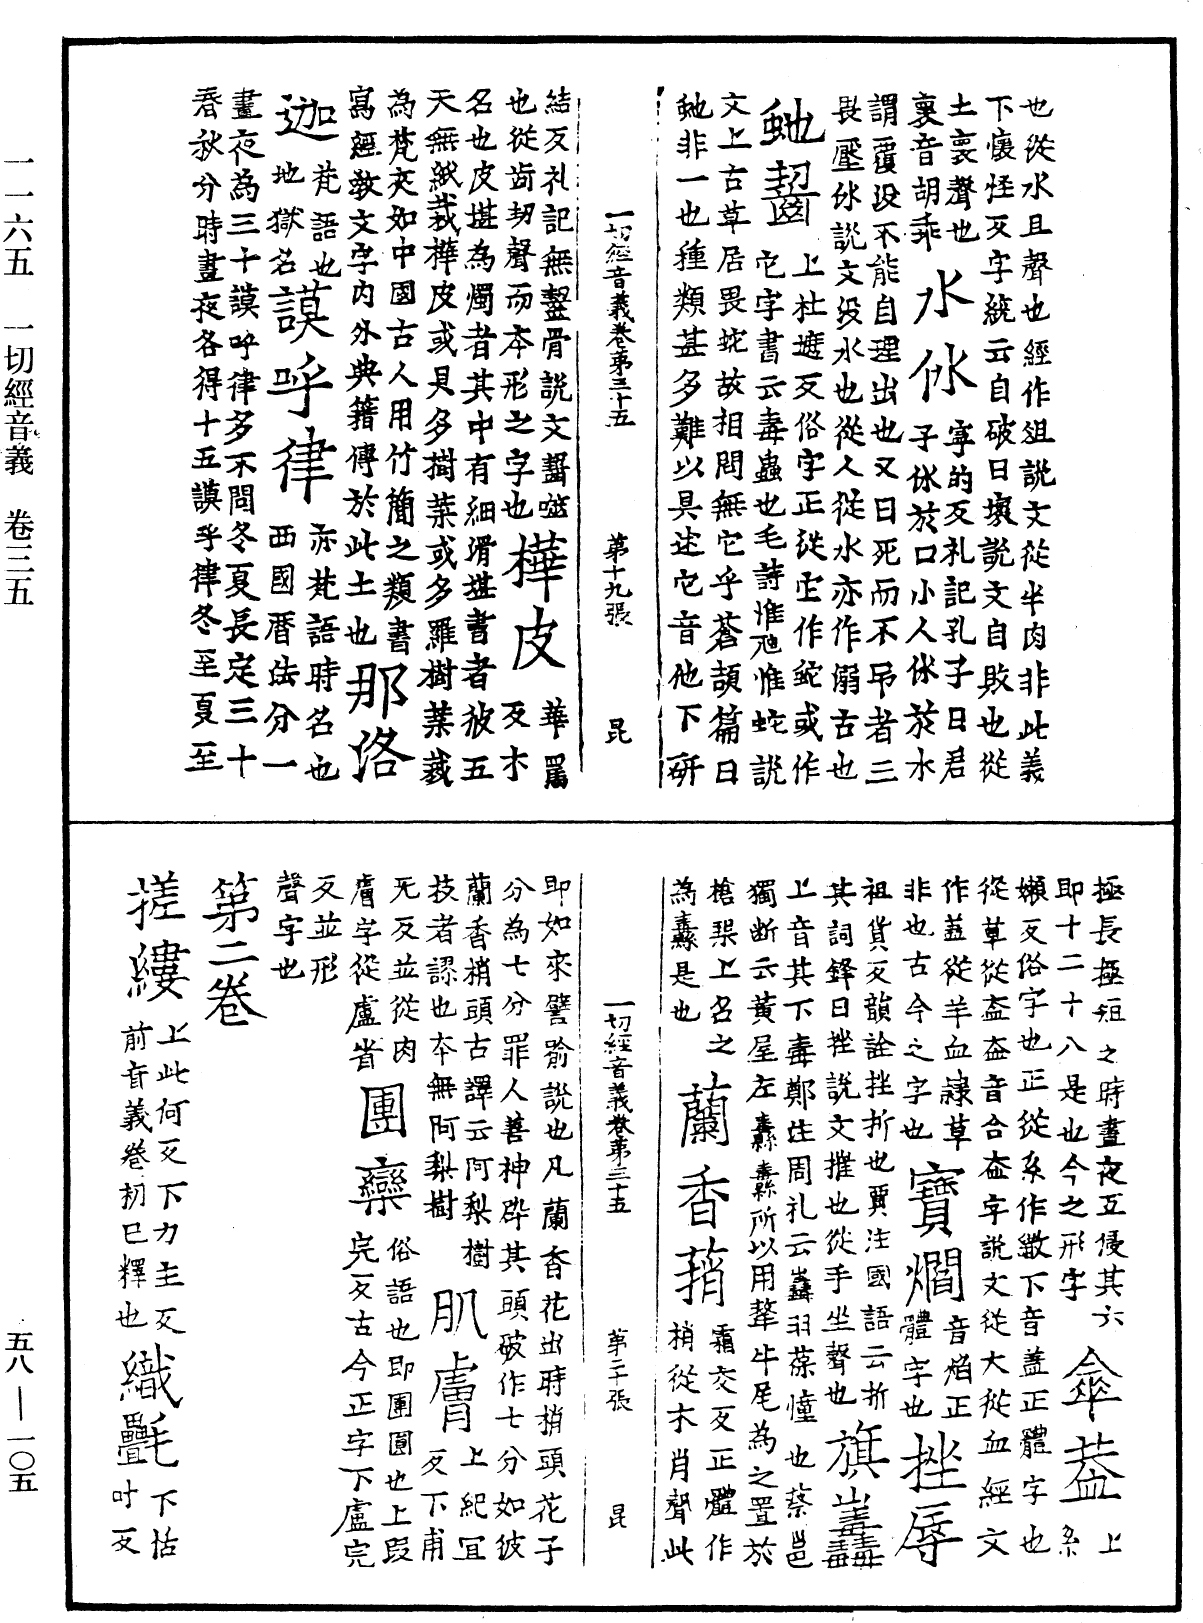 也從水且聲也經作沮說文從半肉非此義
下懷怪反字統云自破曰壞說文自敗也從
土褱聲也
褱音胡乖 水㲻 寧的反礼記孔子曰君
子㲻於口小人㲻於水
謂覆没不能自理出也又曰死而不吊者三
畏壓㲻說文没水也從人從水亦作溺古也
虵齧 上杜遮反俗字正從它作蛇或作
它字書云毒蟲也毛詩惟虺惟蛇說
文上古草居畏蛇故相問無它乎蒼頡篇曰
虵非一也種類甚多難以具述它音他下研
一切經音義卷第三十五 第十九張 昆
結反礼記無齧骨說文齧噬
也從齒㓞聲而夲形之字也 樺皮 華罵反木
名也皮堪為燭者其中有細滑堪書者彼五
天無紙或樺皮或貝多樹葉或多羅樹葉裁
為梵夾如中國古人用竹簡之類書
寫經教文字内外典籍傳於此土也 那洛
迦 梵語也
地獄名 謨呼律 亦梵語時名也
西國曆法分一
晝夜為三十謨呼律多不問冬夏長定三十
春秋分時晝夜各得十五謨乎律冬至夏至
極長極短之時晝夜互侵其六
即十二十八是也今之形字 傘葢 上
嬾反俗字也正從糸作繖下音蓋正體字也
從草從盇盇音合盇字說文從大從血經文
作葢從羊血隷草
非也古今之字也 寶𤒷 音焰正
體字也 挫辱
祖貨反韻詮挫折也賈注國語云折
其詞鋒曰挫說文摧也從手坐聲也 旗纛
上音其下毒鄭注周礼云纛羽葆幢也蔡邕
獨断云黄屋左纛纛所以用犛牛尾為之置於
槍槊上名之
為纛是也 蘭香䔠 霜交反正體作
梢從木肖聲此
一切經音義卷第三十五 第二十張 昆
即如來譬喻說也凡蘭香花出時梢頭花子
分為七分罪人善神辟其頭破作七分如彼
蘭香梢頭古譯云阿梨樹
技者謬也夲無阿梨樹 肌膚 上紀冝
反下甫
无反並從肉
膚字從盧省 團欒 俗語也即團圓也上段
完反古今正字下盧完
反並形
聲字也
第二卷
搓縷 上此何反下力主反
前音義卷初已釋也 織㲲 下恬
叶反
一一六五 一切經音義 卷三五 五八—一〇五